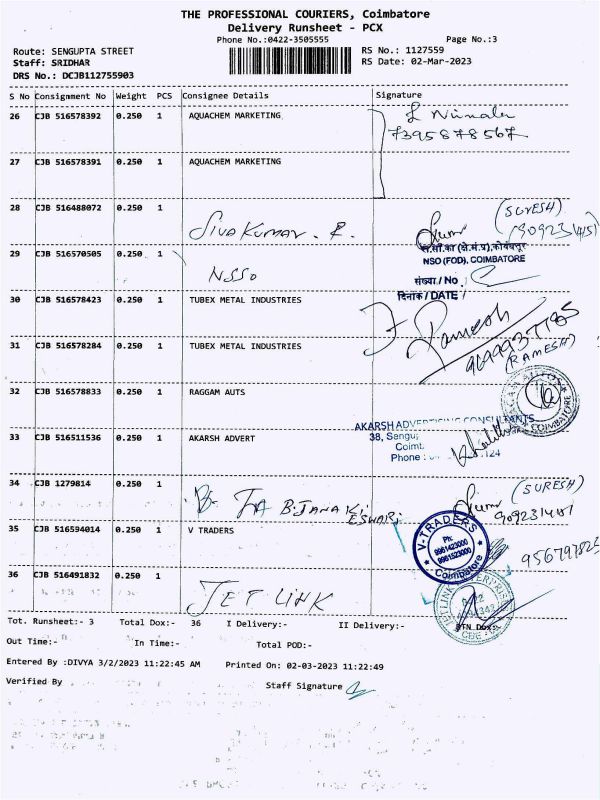 THE PROFESSIONAL COURIERS, Coimbatore
Delivery Runsheet - PCX
Phone No.:0422-3505555
Page No.:3
Route: SENGUPTA STREET
RS No.: 1127559
Staff: SRIDHAR
RS Date: 02-Mar-2023
DRS No.: DCJB112755903
S No Consignment No Weight PCS Consignee Details Signature
26 CJB 516578392 0.250 1 AQUACHEM MARKETING
7395878567
27 CJB 516578391 0.250 1 AQUACHEM MARKETING
28 CJB 516488072 0.250 1 SIVA KUMAR . R. (SURESH)
29 CJB 516570505 0.250 1 NSSO
NSO (FOD), COIMBATORE
संख्या / No
दिनांक / DATE /
30 CJB 516578423 0.250 1 TUBEX METAL INDUSTRIES Ramesh
31 CJB 516578284 0.250 1 TUBEX METAL INDUSTRIES (RAMESH)
32 CJB 516578833 0.250 1 RAGGAM AUTS
COIMBATORE
33 CJB 516511536 0.250 1 AKARSH ADVERT
AKARSH ADVERTISING CONSULTANTS
38, Sengu
Coimb
Phone :
124
34 CJB 1279814 0.250 1 B. JANAKI ESWARI (SURESH)
35 CJB 516594014 0.250 1 V TRADERS
V-TRADERS
Ph:
9961423000
9961523000
Coimbatore
36 CJB 516491832 0.250 1 JET LINK
Tot. Runsheet:- 3 Total Dox:- 36 I Delivery:- II Delivery:- RTN Dox:-
Out Time:- In Time:- Total POD:-
Entered By :DIVYA 3/2/2023 11:22:45 AM Printed On: 02-03-2023 11:22:49
Verified By Staff Signature